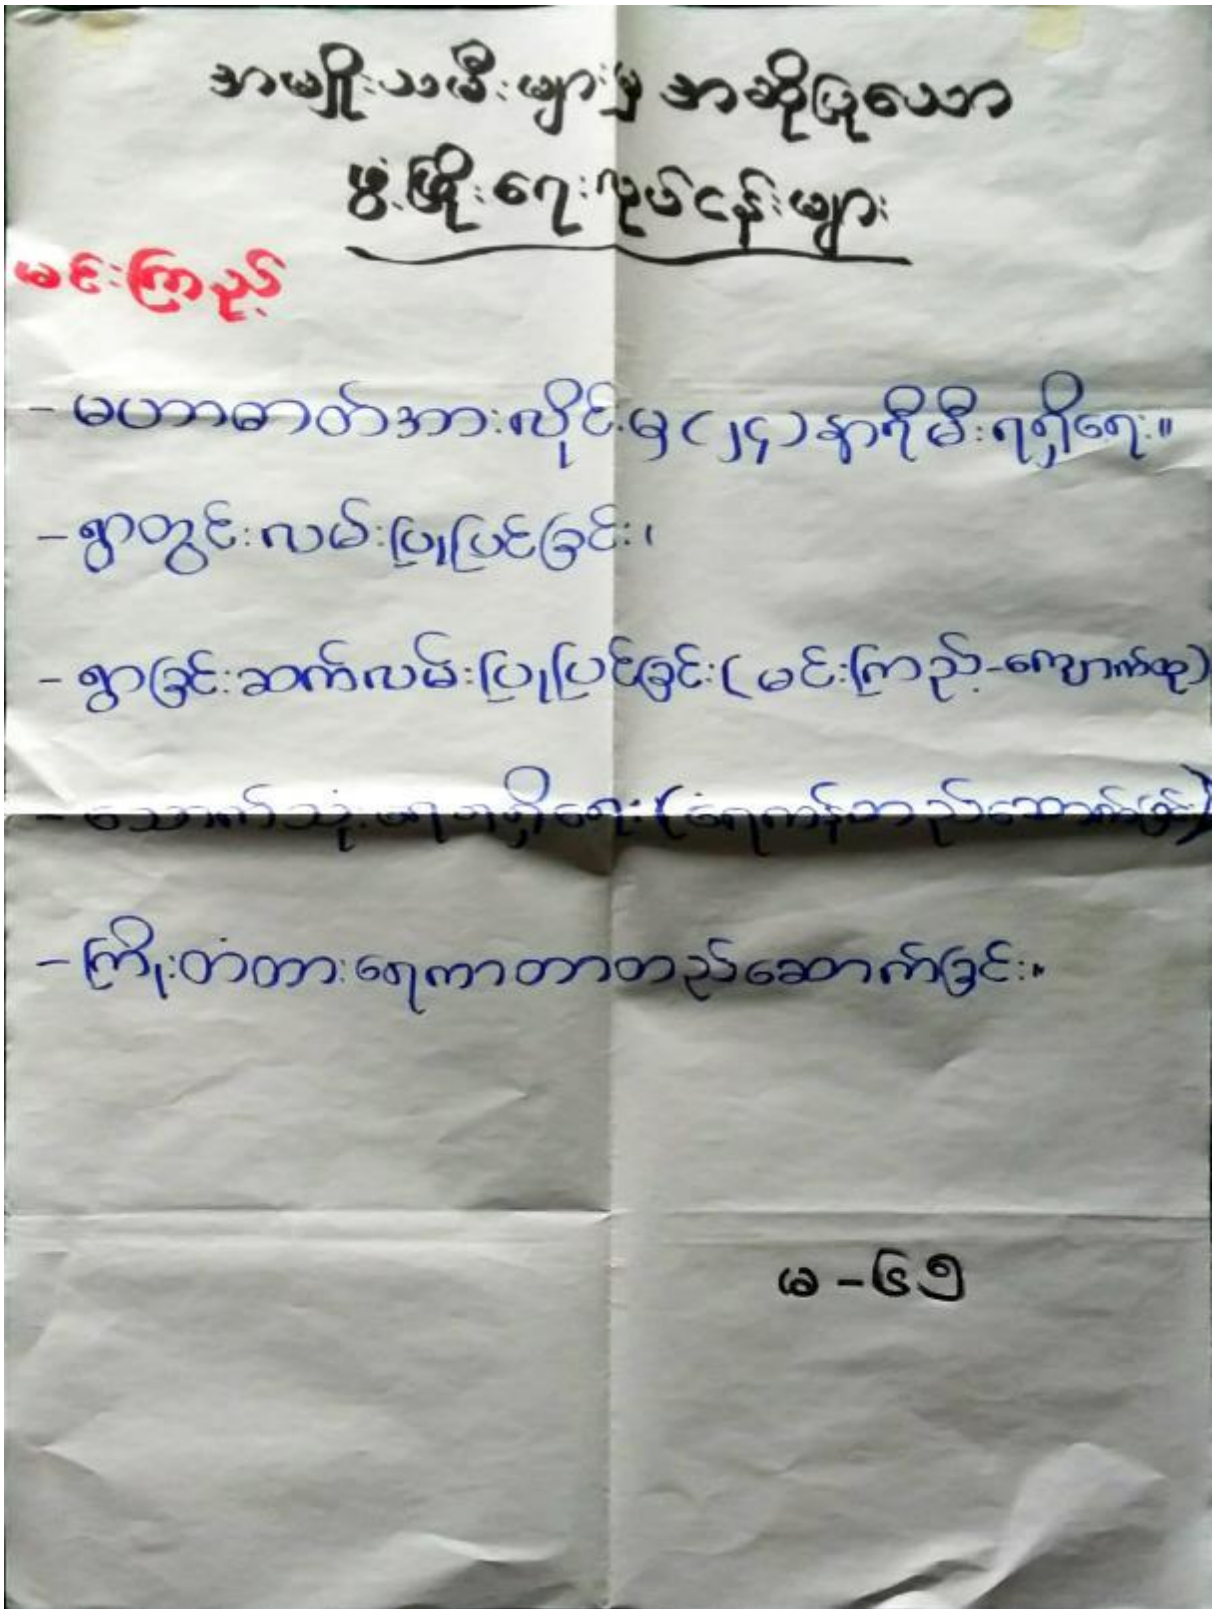 အမျိုးသမီးများမှ အဆိုပြုသော
ဖွံ့ဖြိုးရေးလုပ်ငန်းများ
မင်းကြည့်
- မဟာဓာတ်အားလိုင်းမှ (၂၄) နာရီမီးရရှိရေး။
- ရွာတွင်းလမ်းပြုပြင်ခြင်း၊
- ရွာခြင်းဆက်လမ်းပြုပြင်ခြင်း (မင်းကြည့်-ကျောက်ထု)
- သောက်သုံးရေရရှိရေး (ရေကန်တည်ဆောက်ခြင်း)
- ကြိုးတံတားရေကာတာတည်ဆောက်ခြင်း။
မ - ၆၅